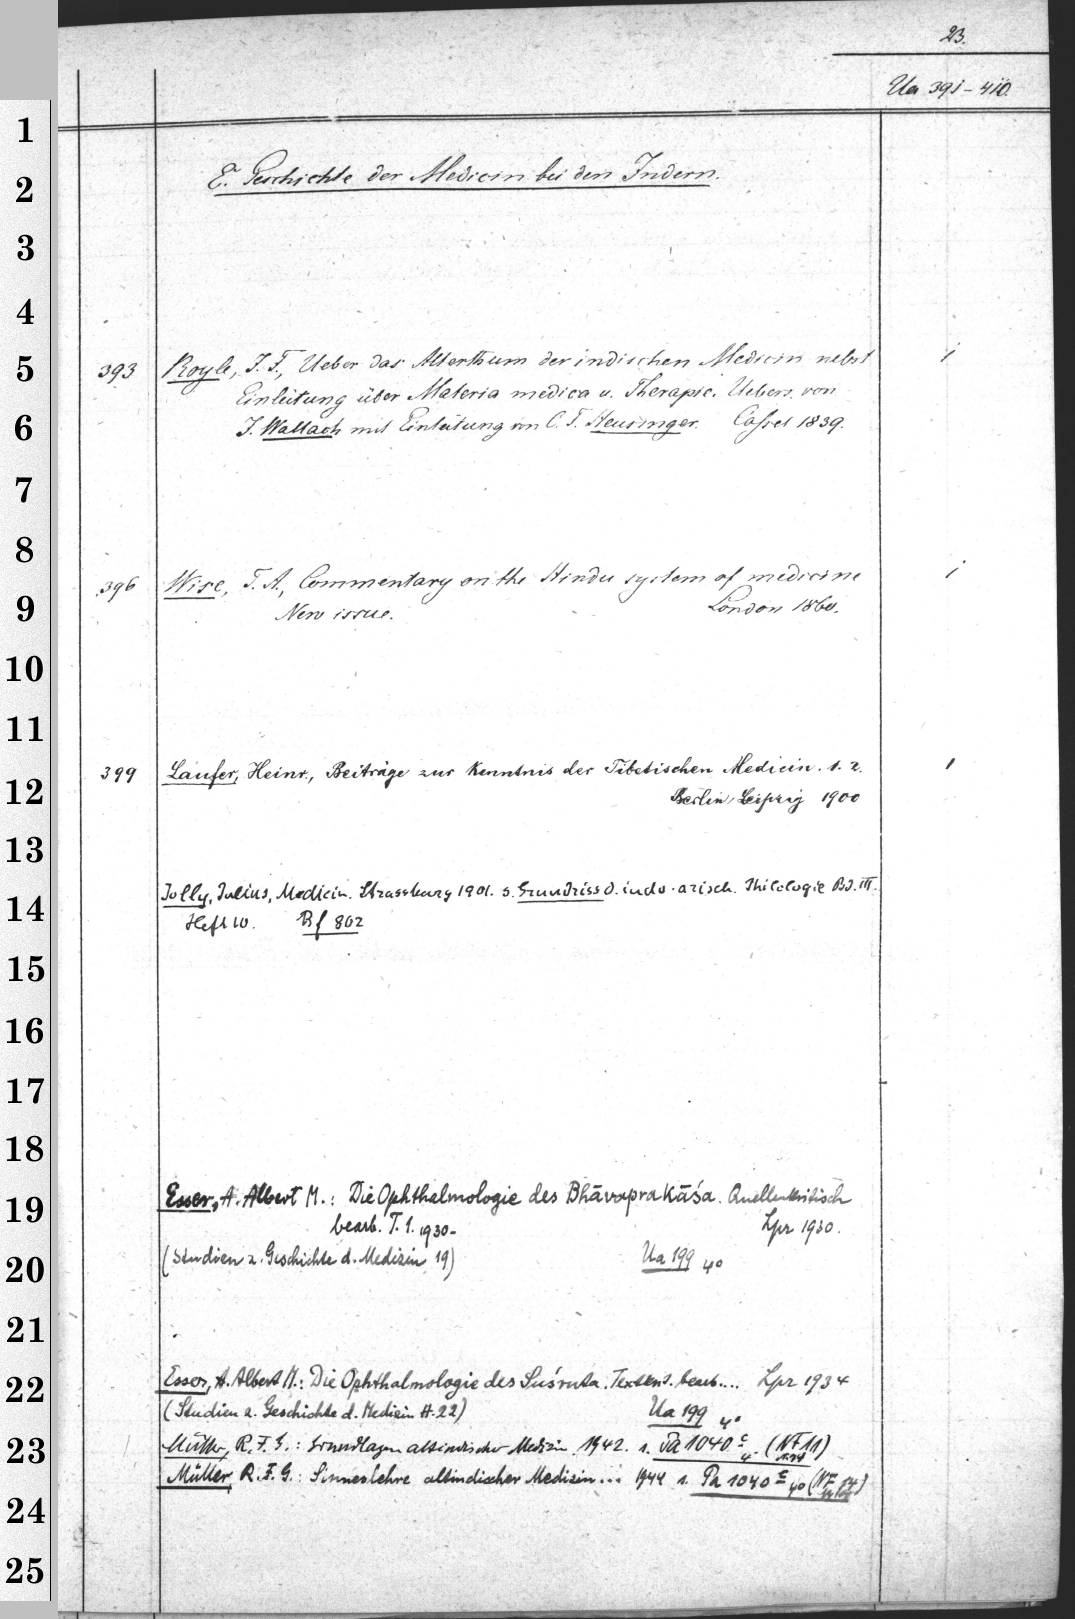 23.
Ua 391-410.
1
E. Geschichte der Medicin bei den Indern.
2
3
4
5
393 Royle, J. F., Ueber das Alterthum der indischen Medicin nebst 1
Einleitung über Materia medica u. Therapie. Uebers. von
6
J. Wallach mit Einleitung von C. F. Heusinger. Cassel 1839.
7
8
396 Wise, T. A., Commentary on the Hindu system of medicine 1
9
New issue. London 1860.
10
11
399 Laufer, Heinr., Beiträge zur Kenntnis der Tibetischen Medicin. 1. 2. 1
12
Berlin, Leipzig 1900
13
Jolly, Julius, Medicin. Strassburg 1901. s. Grundriss d. indo-arisch. Philologie Bd. III.
14
Heft 10. Bf 802
15
16
17
18
Esser, A. Albert M.: Die Ophthalmologie des Bhāvaprakāśa. Quellenkritisch
19
bearb. T. 1. 1930- Lpz 1930.
(Studien z. Geschichte d. Medizin 19) Ua 199 4°
20
21
Esser, A. Albert M.: Die Ophthalmologie des Suśruta. Textens. bearb.... Lpz 1934
22
(Studien z. Geschichte d. Medizin H. 22) Ua 199 4°
Müller, R. F. G.: Grundlagen altindischer Medizin. 1942. s. Pa 1040 c 4° (NF 11)
23
Müller, R. F. G.: Sinneslehre altindischer Medizin... 1944 s. Pa 1040 c 4° (NF 14)
24
25